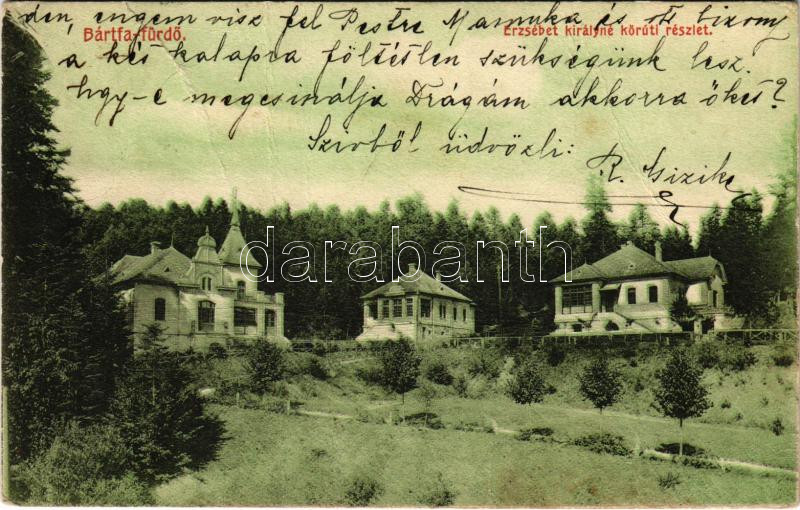 den, engem visz fel Pestre Mamuka és itt bizony
Bártfa-fürdő.
Erzsébet királyné körúti részlet.
a két kalapra föltétlen szükségünk lesz.
Ugy-e megcsinálja Drágám akkorra őket?
Szivből üdvözli:
R. Gizike
darabanth